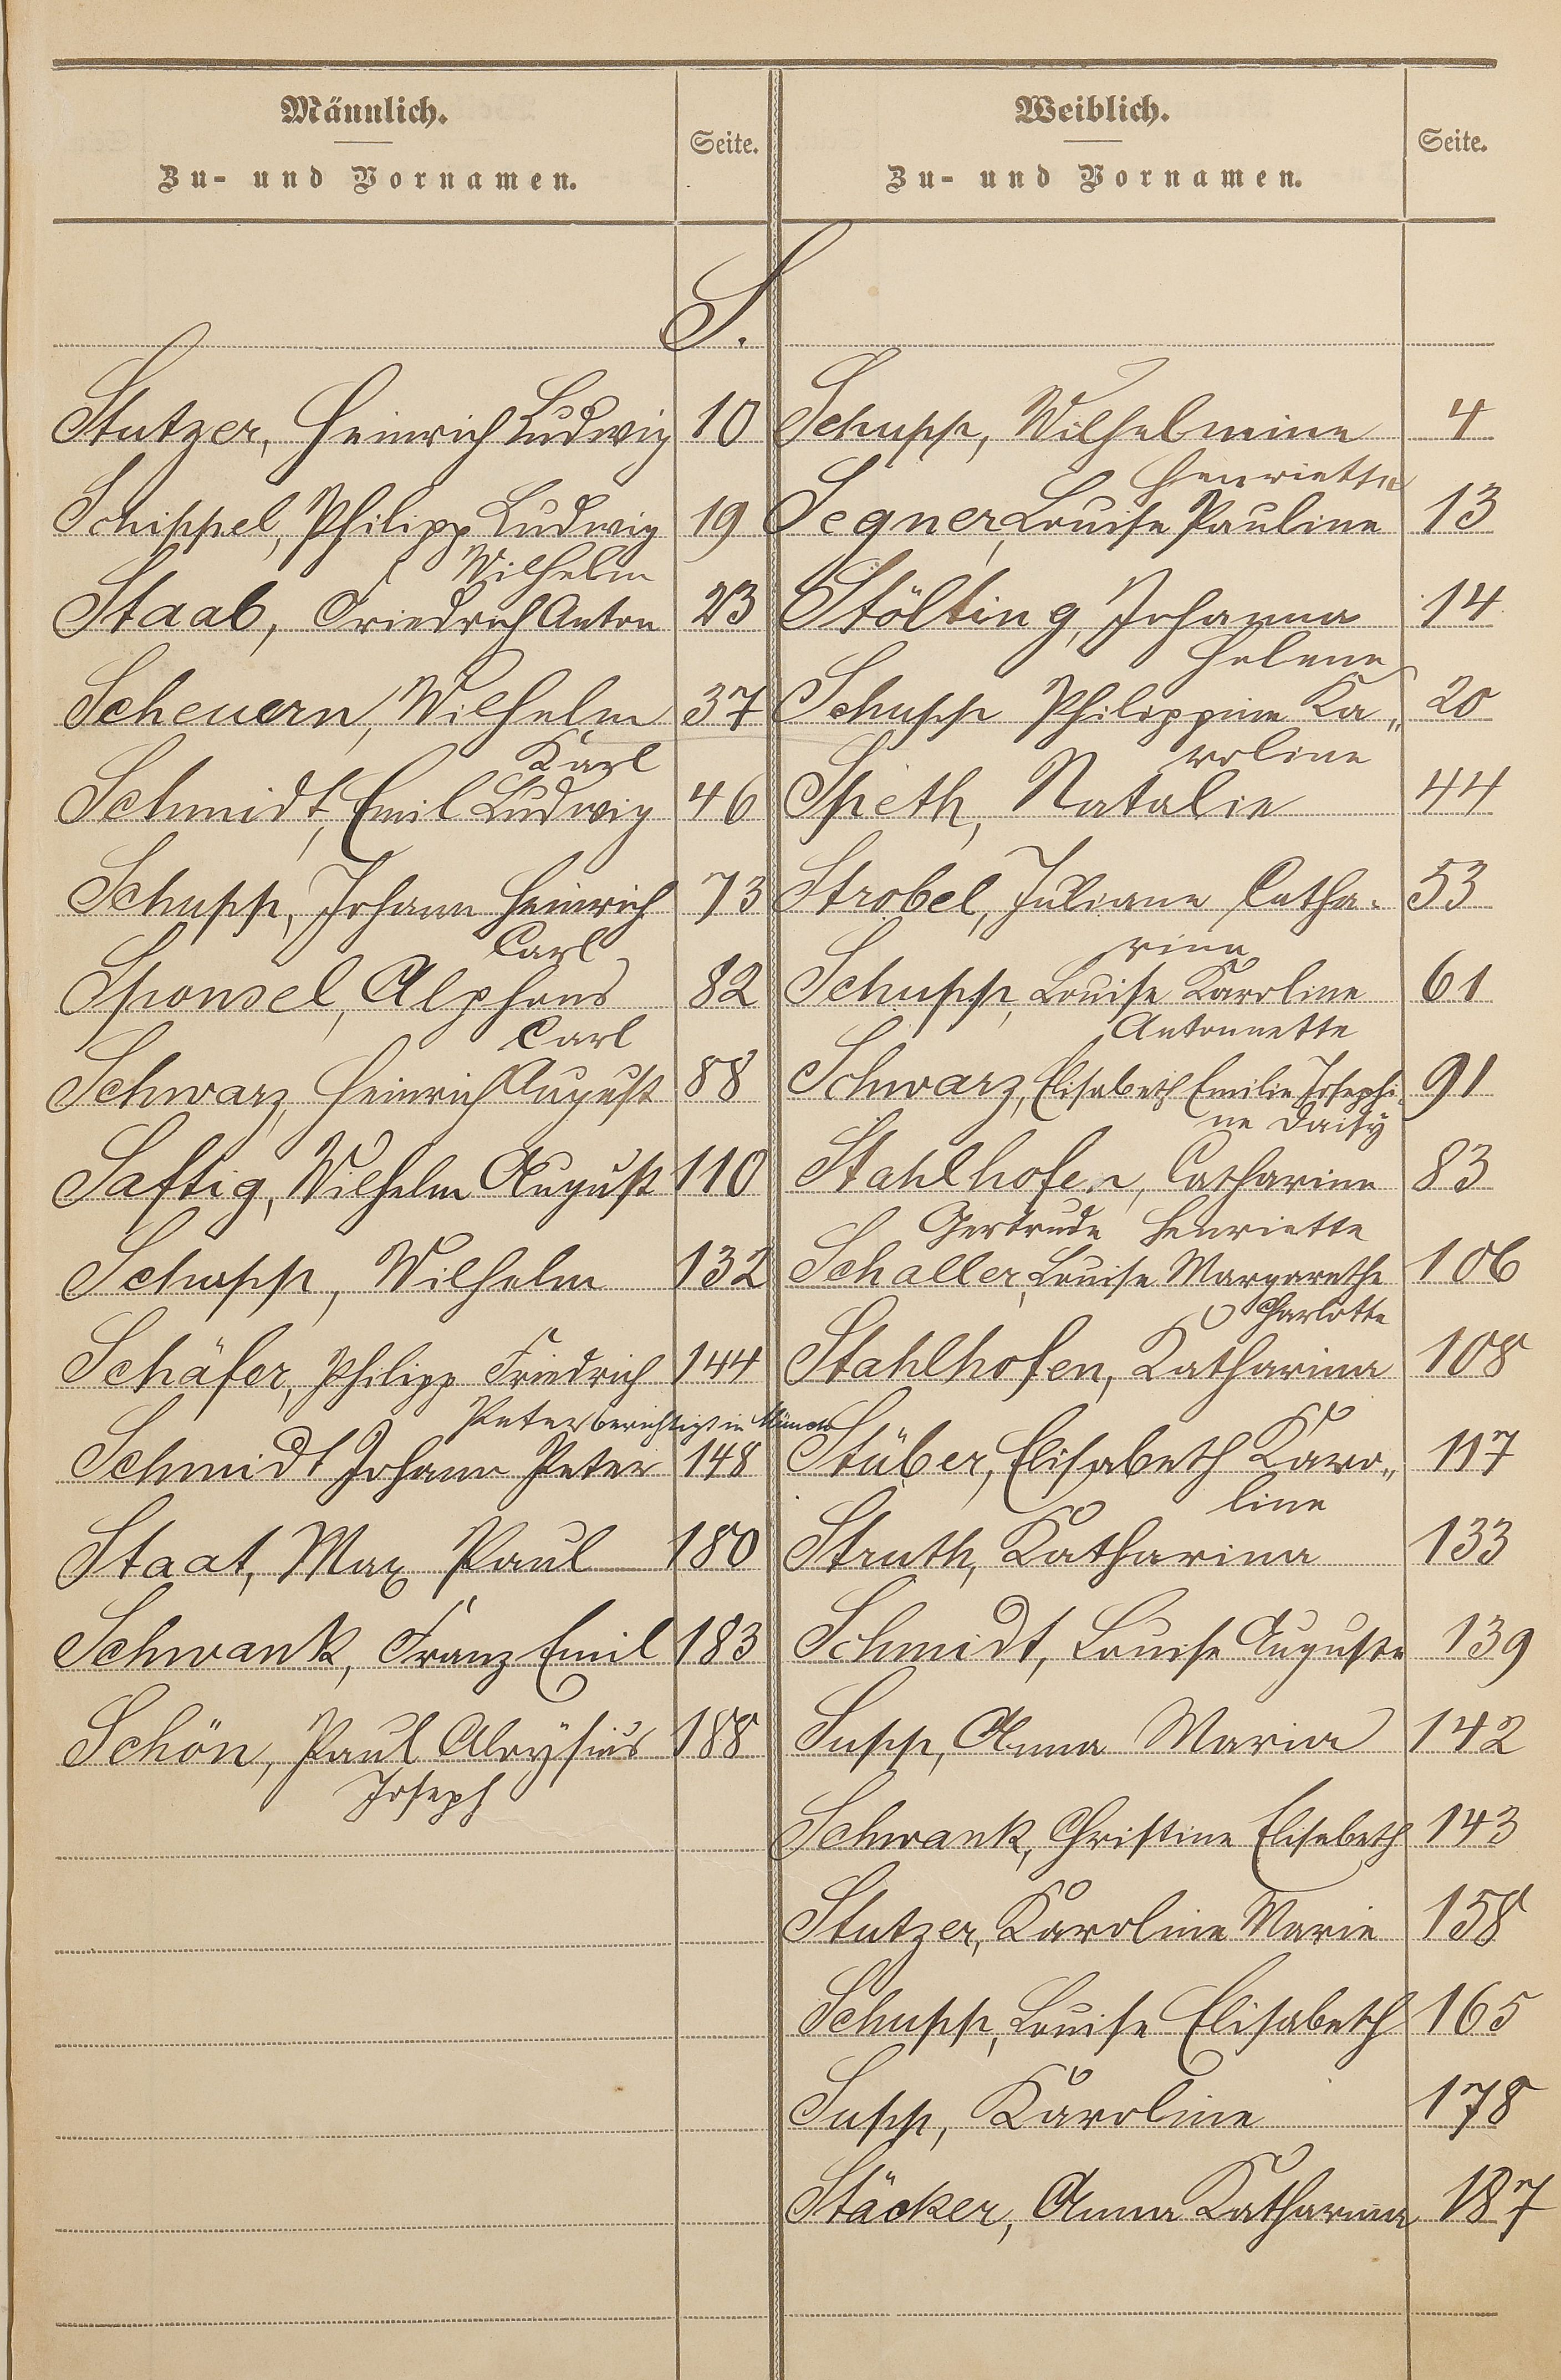 Männlich.
Zu- und Vornamen.
Seite.
Weiblich.
Zu- und Vornamen.
Seite.
S.
Stutzer, Heinrich Ludwig 10
Schippel, Philipp Ludwig 19
Wilhelm
Staab, Friedrich Anton 23
Scheuern, Wilhelm 37
Karl
Schmidt, Emil Ludwig 46
Schupp, Johann Heinrich 73
Carl
Sponsel, Alphons 82
Carl
Schwarz, Heinrich August 88
Saftig, Wilhelm August 110
Schupp, Wilhelm 132
Schäfer, Philipp Friedrich 144
Peter berichtigt in
Schmidt Johann Peter 148
Staat, Max Paul 180
Schwank, Franz Emil 183
Schön, Paul Aloysius 188
Joseph
Schupp, Wilhelmine 4
Henriette
Segner, Louise Pauline 13
Stölting, Johanna 14
Helene
Schupp Philippine Ka„ 20
roline
Speth, Natalie 44
Strobel, Juliane Catha- 53
rina
Schupp, Louise Karoline 61
Antonnette
Schwarz, Elisabeth Emilie Josephi- 91
ne Daisy
Stahlhofen, Catharine 83
Gertrude Henriette
Schaller, Louise Margarethe 106
Charlotte
Stahlhofen, Katharina 108
Stüber, Elisabeth Karo„ 117
line
Struth, Katharina 133
Schmidt, Louise Auguste 139
Supp, Anna Maria 142
Schwank, Christine Elisabeth 143
Stutzer, Karoline Marie 158
Schupp, Louise Elisabeth 165
Supp, Karoline 178
Stäcker, Anna Katharina 187